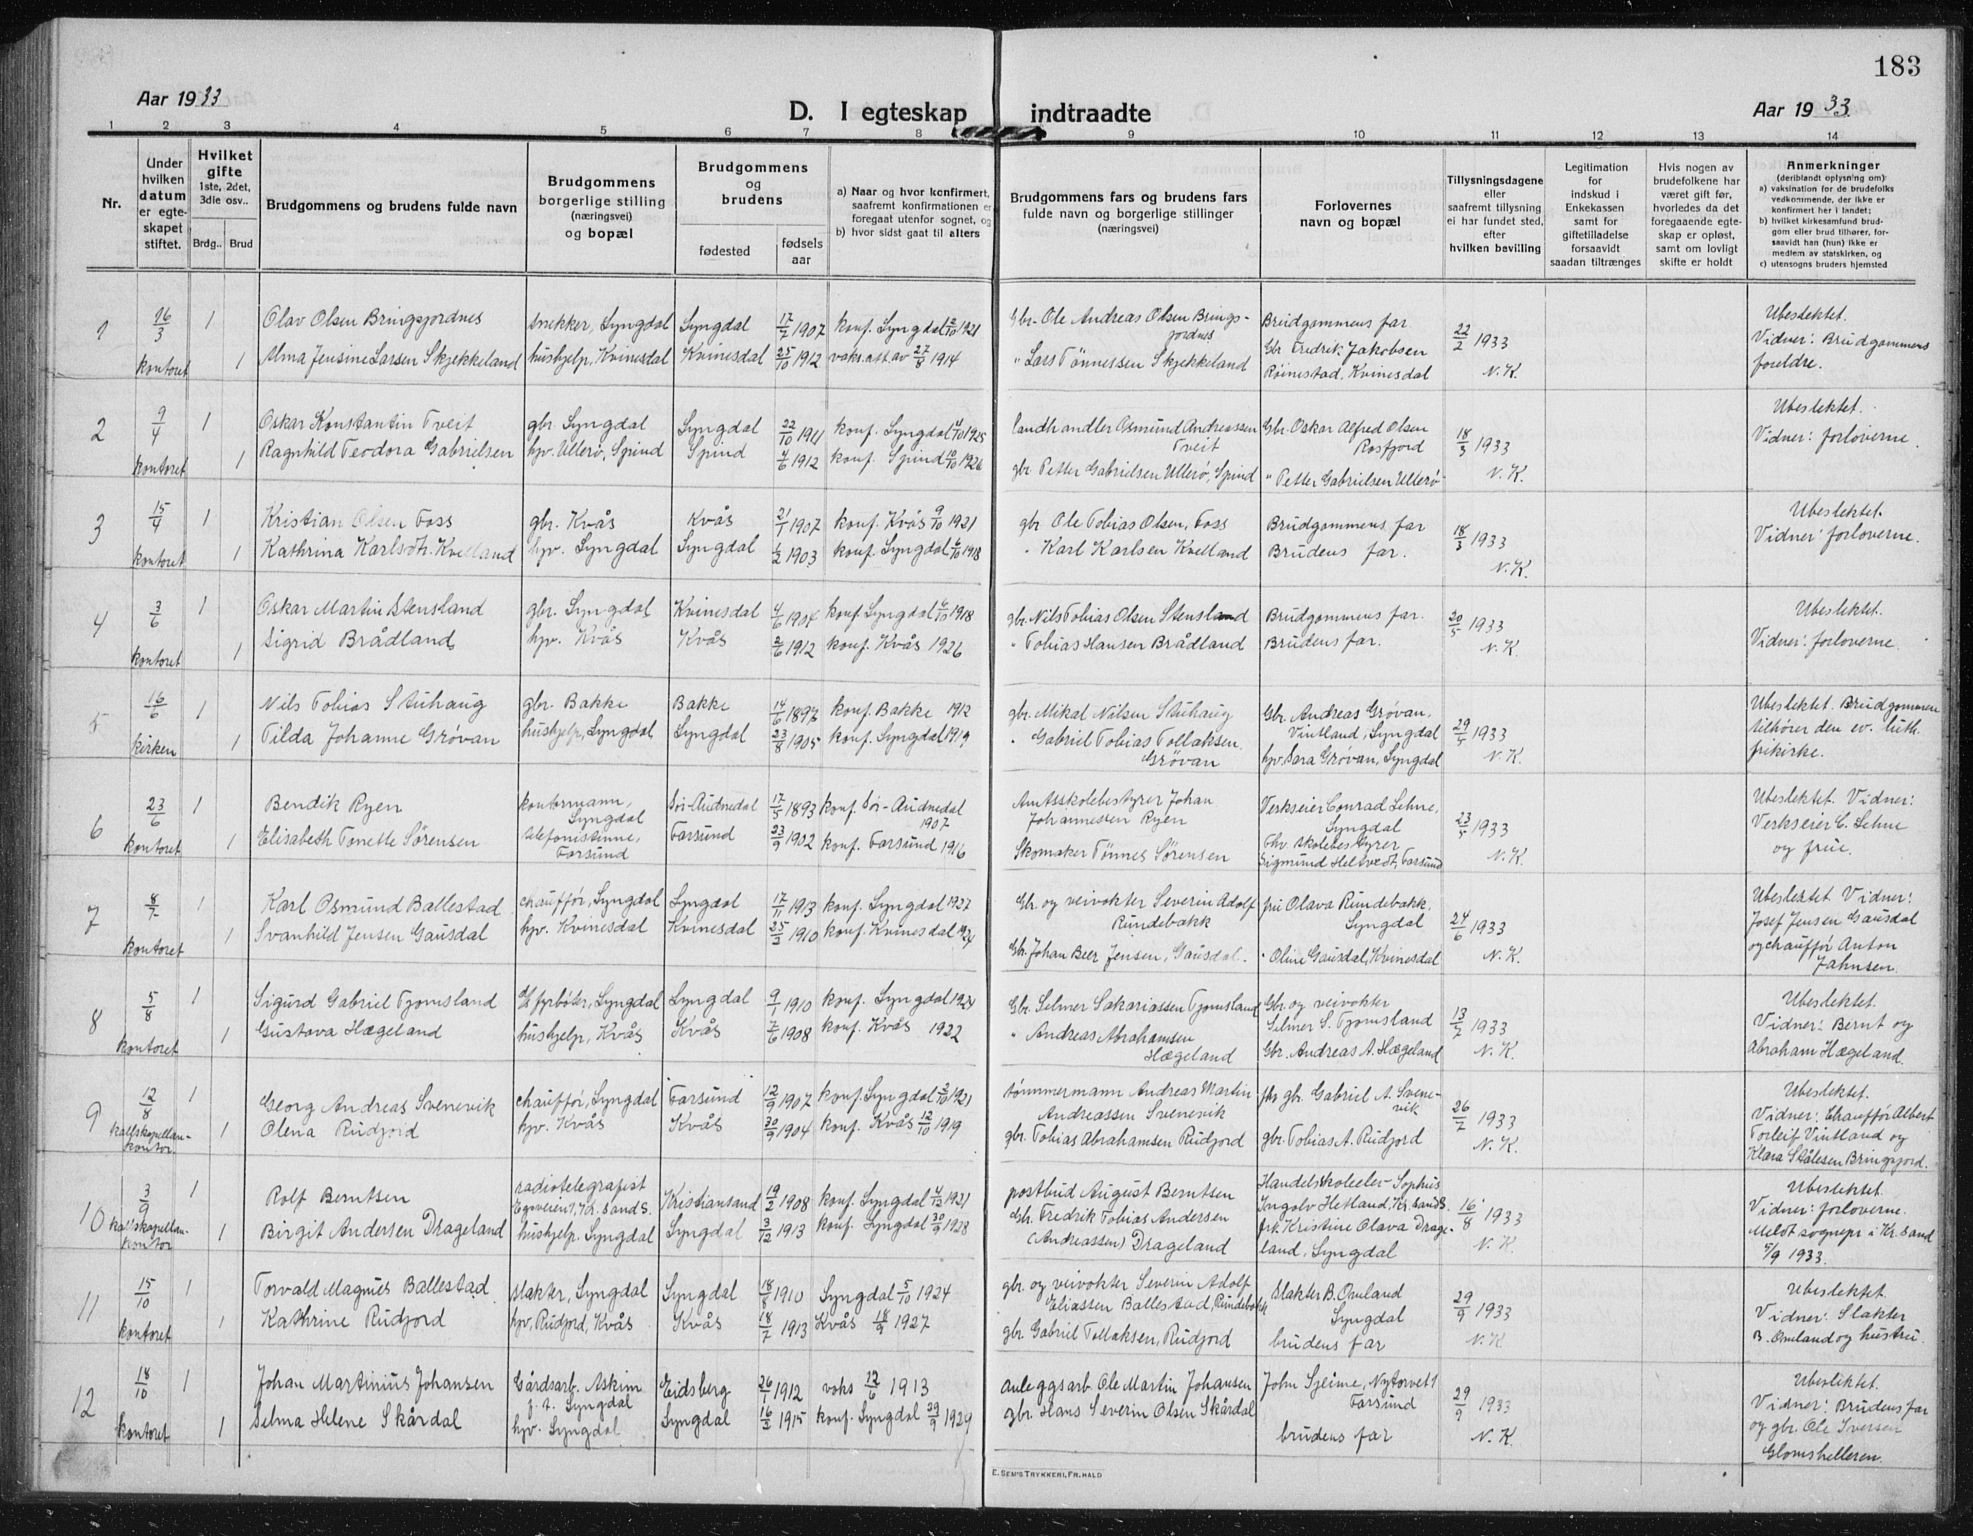 183
Aar 1933
D. I egteskap indtraadte
Aar 1933.
1 2 3 4 5 6 7 8 9 10 11 12 13 14
Nr.
Under hvilken datum er egteskapet stiftet.
Hvilket gifte 1ste, 2det, 3die osv..
Brdg.. Brud
Brudgommens og brudens fulde navn
Brudgommens borgerlige stilling (næringsvei) og bopæl
Brudgommens og brudens
fødested
fødsels aar
a) Naar og hvor konfirmert, saafremt konfirmationen er foregaat utenfor sognet, og
b) hvor sidst gaat til alters
Brudgommens fars og brudens fars fulde navn og borgerlige stillinger (næringsvei)
Forlovernes navn og bopæl
Tillysningsdagene eller saafremt tillysning ei har fundet sted, efter hvilken bevilling
Legitimation for indskud i Enkekassen samt for giftetilladelse forsaavidt saadan tiltrænges
Hvis nogen av brudefolkene har været gift før, hvorledes da det foregaaende egteskap er opløst, samt om lovligt skifte er holdt
Anmerkninger (deriblandt oplysning om)
a) vaksination for de brudefolks vedkommende, der ikke er konfirmert her i landet;
b) hvilket kirkesamfund brudgom eller brud tilhører, forsaavidt han (hun) ikke er medlem av statskirken, og
c) utensogns bruders hjemsted
1 16/3 1 Olav Olsen Bringsjordnes snekker, Lyngdal Lyngdal 17/7 1907 konf. Lyngdal 2/10 1921
kontoret 1 Alma Jensine Larsen Skjekkeland hushjelp, Kvinesdal Kvinesdal 25/10 1912 vaks.att av 27/8 1914
Gbr. Ole Andreas Olsen Bringsjordnes
" Lars Tønnessen Skjekkeland
Brudgommens far
Gbr Fredrik Jakobsen
Røinestad, Kvinesdal
22/2 1933
N.K.
Ubeslektet.
Vidner: Brudgommens
foreldre.
2 9/4 1 Oskar Konstantin Tveit gbr. Lyngdal Lyngdal 22/10 1911 konf. Lyngdal 4/10 1925
kontoret 1 Ragnhild Teodora Gabrielsen hjv. Ullerø, Spind Spind 4/6 1912 konf. Spind 10/10 1926
landhandler Osmund Andreassen
Tveit
gbr Petter Gabrielsen Ullerø, Spind
Gbr. Oskar Alfred Olsen
Rosfjord
" Petter Gabrielsen Ullerø
18/3 1933
N.K.
Ubeslektet.
Vidner: forloverne.
3 15/4 1 Kristian Olsen Foss gbr. Kvås Kvås 21/1 1907 konf. Kvås 9/10 1921
kontoret 1 Kathrina Karlsdtr. Kvelland hjv. Lyngdal Lyngdal 6/2 1903 konf. Lyngdal 6/10 1918
gbr Ole Tobias Olsen, Foss
" Karl Karlsen Kvelland
Brudgommens far
Brudens far.
18/3 1933
N.K.
Ubeslektet.
Vidner: forloverne.
4 3/6 1 Oskar Martin Stensland gbr. Lyngdal Kvinesdal 4/6 1904 konf. Lyngdal 6/10 1918
kontoret 1 Sigrid Brådland hjv. Kvås Kvås 2/6 1912 konf. Kvås 1926
gbr. Nils Tobias Olsen Stensland
" Tobias Hansen Brådland
Brudgommens far.
Brudens far.
20/5 1933
N.K.
Ubeslektet.
Vidner: forloverne.
5 16/6 1 Nils Tobias Stuhaug gbr. Bakke Bakke 14/6 1897 konf. Bakke 1912
kirken 1 Tilda Johanne Grøvan hushjelp, Lyngdal Lyngdal 23/8 1905 konf. Lyngdal 1919
gbr. Mikal Nilsen Stuhaug
" Gabriel Tobias Tollaksen
Grøvan
Gbr. Andreas Grøvan,
Vintland, Lyngdal
hjv. Sara Grøvan, Lyngdal
29/5 1933
N.K.
Ubeslektet. Brudgommen
tilhører den ev. luth.
frikirke.
6 23/6 1 Bendik Ryen kontormann, Lyngdal Sør-Audnedal 17/5 1893 konf Sør-Audnedal 1907
kontoret 1 Elisabeth Tonette Sørensen telefonistinne, Farsund Farsund 23/9 1902 konf. Farsund 1916
Amtsskolebestyrer Johan
Johannesen Ryen
Skomaker Tønnes Sørensen
Verkseier Conrad Lehne,
Lyngdal
Fhv skolebestyrer
Sigmund Heltvedt, Farsund
23/5 1933
N.K.
Ubeslektet. Vidner:
Verkseier C. Lehne
og frue.
7 8/7 1 Karl Osmund Ballestad chauffør, Lyngdal Lyngdal 17/11 1913 konf. Lyngdal 1927
kontoret 1 Svanhild Jensen Gausdal hjv. Kvinesdal Kvinesdal 25/3 1910 konf. Kvinesdal 1924
Gbr. og veivokter Severin Adolf
Rundebakk
Gbr. Johan Beer Jensen, Gausdal.
fru Olava Rundebakk,
Lyngdal
" Oline Gausdal, Kvinesdal
24/6 1933
N.K.
Ubeslektet Vidner:
Josef Jensen Gausdal
og chauffør Anton
Jahnsen.
8 5/8 1 Sigurd Gabriel Tjomsland fyrbøter, Lyngdal Lyngdal 9/1 1910 konf. Lyngdal 1924
kontoret 1 Gustava Hægeland hushjelp, Kvås Kvås 7/6 1908 konf. Kvås 1922
Gbr. Selmer Sakariassen Tjomsland
" Andreas Abrahamsen
Hægeland
Gbr. og veivokter
Selmer S. Tjomsland
Gbr. Andreas A. Hægeland
13/7 1933
N.K.
Ubeslektet.
Vidner: Bernt og
Abraham Hægeland.
9 12/8 1 Georg Andreas Svenevik chauffør, Lyngdal Farsund 12/9 1907 konf. Lyngdal 2/10 1921
kallskapellan- kontor. 1 Olena Rudjord hjv. Kvås Kvås 30/9 1904 konf. Kvås 12/10 1919
tømmermann Andreas Martin
Andreassen Svenevik
gbr. Tobias Abrahamsen Rudjord
fhv gbr. Gabriel A. Svenevik
gbr. Tobias A. Rudjord
26/7 1933
N.K.
Ubeslektet.
Vidner: Chauffør Albert
Torleif Vintland og
Klara Stålesen Bringsjord.
10 3/9 1 Rolf Berntsen radiotelegrafist Kr.sand S. Kristiansand 19/2 1908 konf. Lyngdal 4/12 1921
kallskapellan- kontor 1 Birgit Andersen Drageland hushjelp, Lyngdal Lyngdal 3/12 1913 konf. Lyngdal 30/9 1928
postbud August Berntsen
Gbr. Fredrik Tobias Andersen
(Andreassen) Drageland
Handelskoleelev Sophus
Ingolv Hetland, Kr.sand S.
frk. Kristine Olava Drageland, Lyngdal
16/8 1933
N.K.
Ubeslektet.
Vidner: forloverne.
Meldt sognepr i Kr.sand
5/9 1933.
11 15/10 1 Torvald Magnus Ballestad slakter, Lyngdal Lyngdal 18/8 1910 Lyngdal 5/10 1924
kontoret 1 Kathrine Rudjord hjv, Rudjord, Kvås Kvås 18/7 1913 Kvås 18/9 1927
gbr. og veivokter Severin Adolf
Eliassen Ballestad, Rundebakk
gbr. Gabriel Tollaksen, Rudjord
Slakter B. Omland
Lyngdal
brudens far
29/9 1933
N.K.
Ubeslektet.
Vidner: Slakter
B. Omland og hustru.
12 18/10 1 Johan Martinius Johansen Gårdsarb. Askim f. t. Lyngdal Eidsberg 26/1 1912 vaks 12/6 1913
kontoret 1 Selma Helene Skårdal hjv. Lyngdal Lyngdal 16/3 1915 konf. Lyngdal 29/9 1929
anleggsarb Ole Martin Johansen
gbr. Hans Severin Olsen Skårdal
John Sjeime, Nytorvet 1
Farsund
brudens far
29/9 1933
N.K.
Ubeslektet.
Vidner: Brudens far
og gbr. Ole Iversen
Glomshelleren.
E. SEM'S TRYKKERI, FR.HALD